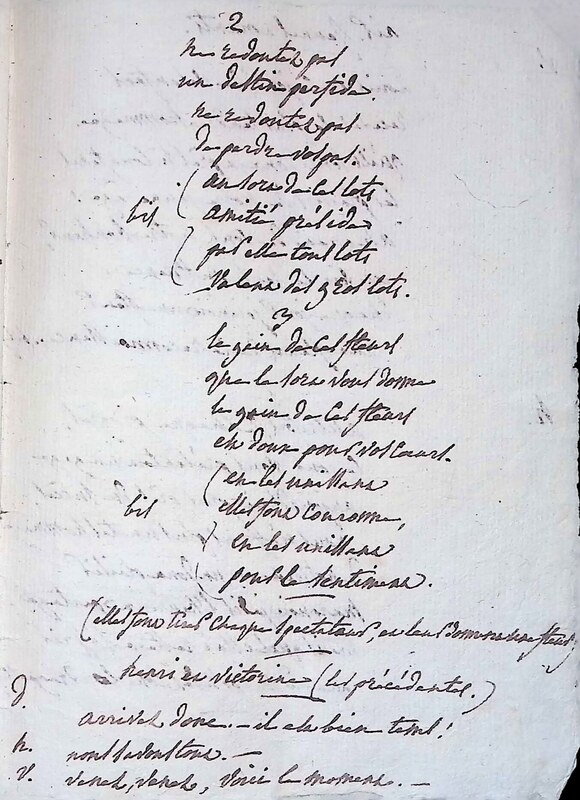 2
ne redoutez pas
un destin perfide.
ne redoutez pas
de perdre vos pas.
(au sort de ces lots
bis amitié préside
par elle tous lots
valent des gros lots.
3
le gain de ces fleurs
que le sort vous donne
le gain de ces fleurs
est doux pour vos cœurs.
(en les unissant
bis elles font couronne,
en les unissant
pour le sentiment.
(elles font tirer chaque spectateur, et leur donnent une fleur)
henri et victorine (les précédentes.)
D. arrivez donc. – il est bien tems!
h. nous savons tous. –
V. venez, venez, voici le moment. –